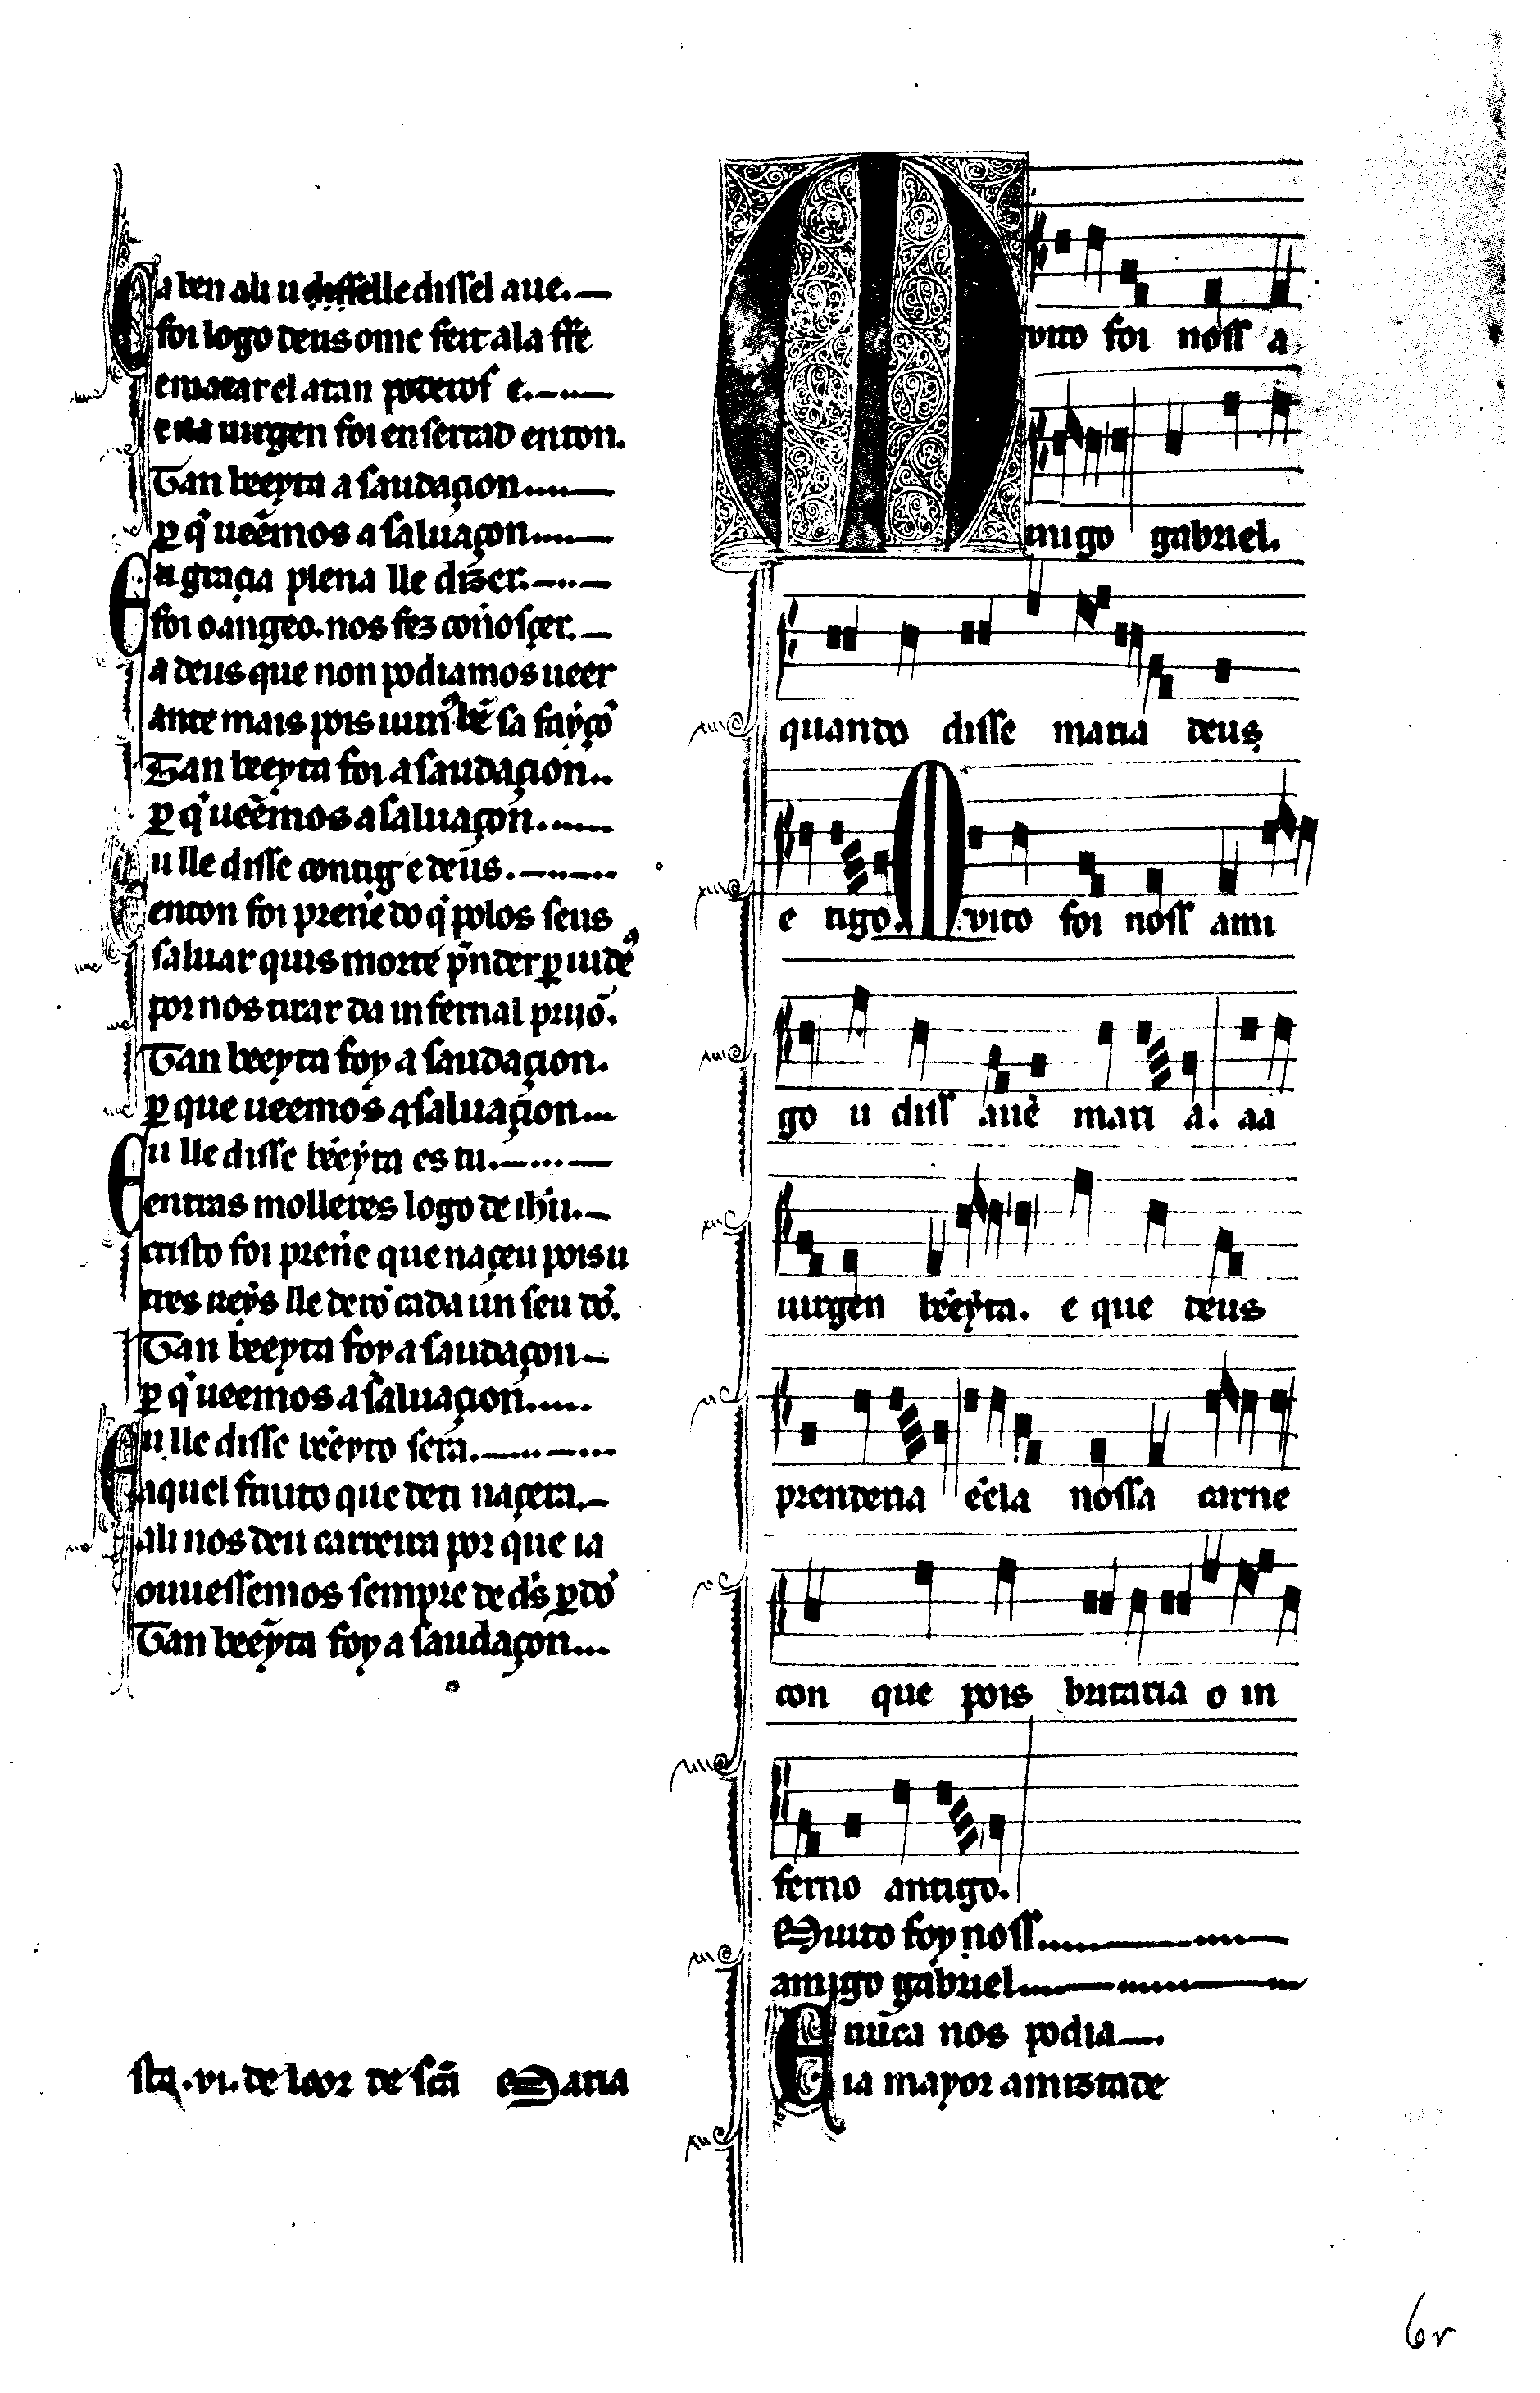 Ca ben ali u disselle dissel aue.
foi logo deus ome feit a la ffe
e macar el atan poderos e.
e na uirgen foi enserrad enton.
Tan bẽeyta a saudaçion
ꝑ q̃ uẽemos a saluaçon
En gracia plena lle dizer.
foi o angeo. nos fez coñosçer.
a deus que non podiamos ueer
ante mais pois uim9 bẽ sa fayçõ
Tan bẽeyta foi a saudaçion
ꝑ q̃ uẽemos a saluaçon
Eu lle disse contig e deus.
enton foi preñe do q̃ polos seus
saluar quis morte p̃nder ꝑ iudeus
por nos tirar da infernal prijõ.
Tan bẽeyta foy a saudaçion.
ꝑ que ueemos a saluaçion
Eu lle disse bẽeyta es tu.
entras molleres logo de ihũ.
cristo foi preñe que naçeu pois u
tres reys lle derõ cada un seu dõ.
Tan bẽeyta foy a saudaçon
ꝑ q̃ ueemos a saluaçion
Eu lle disse bẽeyto sera.
aquel fruito que de ti naçera.
ali nos deu carreira por que ia
ouuessemos sempre de d̃s ꝑdõ
Tan bẽeyta foy a saudaçon
sta .vi. de loor de sc̃a Maria
Muito foi noss a
migo gabriel.
quando disse maria deus
e tigo. Muito foi noss ami
go u diss aue mari a. aa
uirgen bẽeyta. e que deus
prenderia ẽela nossa carne
con que pois britaria o in
ferno antigo.
Muito foy noss
amigo gabriel
E nũca nos podia
ia mayor amizade
6r